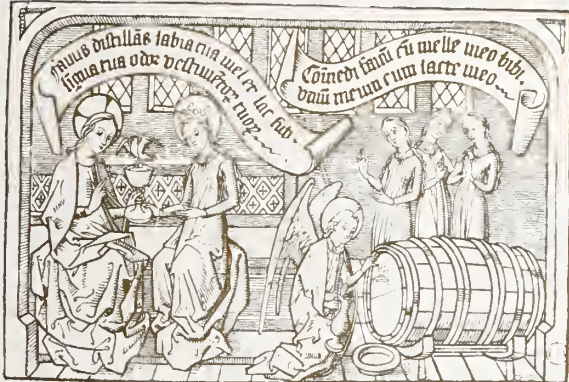 favus distillās labia tua mel et lac sub-
ligua tua odor vestimētoꝝ tuoꝝ
Cōmedi favū cū melle meo bibi-
vinū meum cum lacte meo